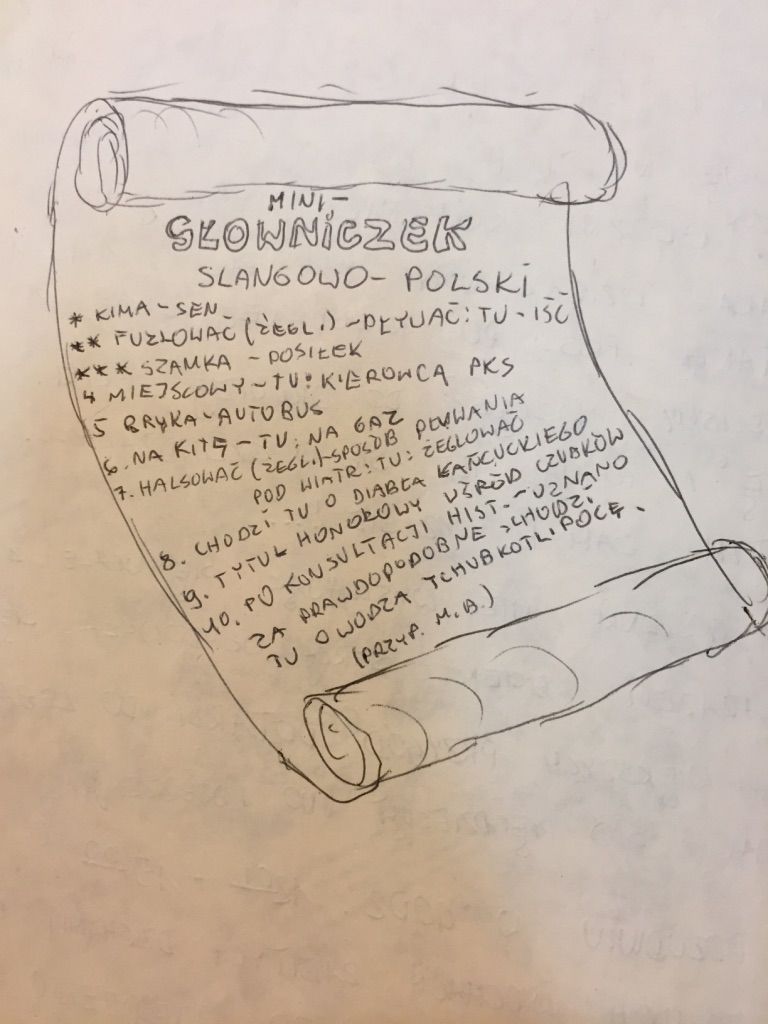 MINI-
SŁOWNICZEK
SLANGOWO-POLSKI
* KIMA-SEN
** FUZLOWAĆ (ŻEGL.) - PŁYWAĆ: TU - IŚĆ
*** SZAMKA - POSIŁEK
4 MIEJSCOWY - TU: KIEROWCA PKS
5 BRYKA-AUTOBUS
6. NA KITĘ - TU: NA GAZ
7. HALSOWAĆ (ŻEGL.)-SPOSÓB PŁYWANIA
POD WIATR: TU: ŻEGLOWAĆ
8. CHODZI TU O DIABŁA ŁAŃCUCKIEGO
9. TYTUŁ HONOROWY WŚRÓD CZUBKÓW
10. PO KONSULTACJI HIST. - UZNANO
ZA PRAWDOPODOBNE: CHODZI
TU O WODZA TCHUBKOTLIPOCĘ.
(PRZYP. M.B.)